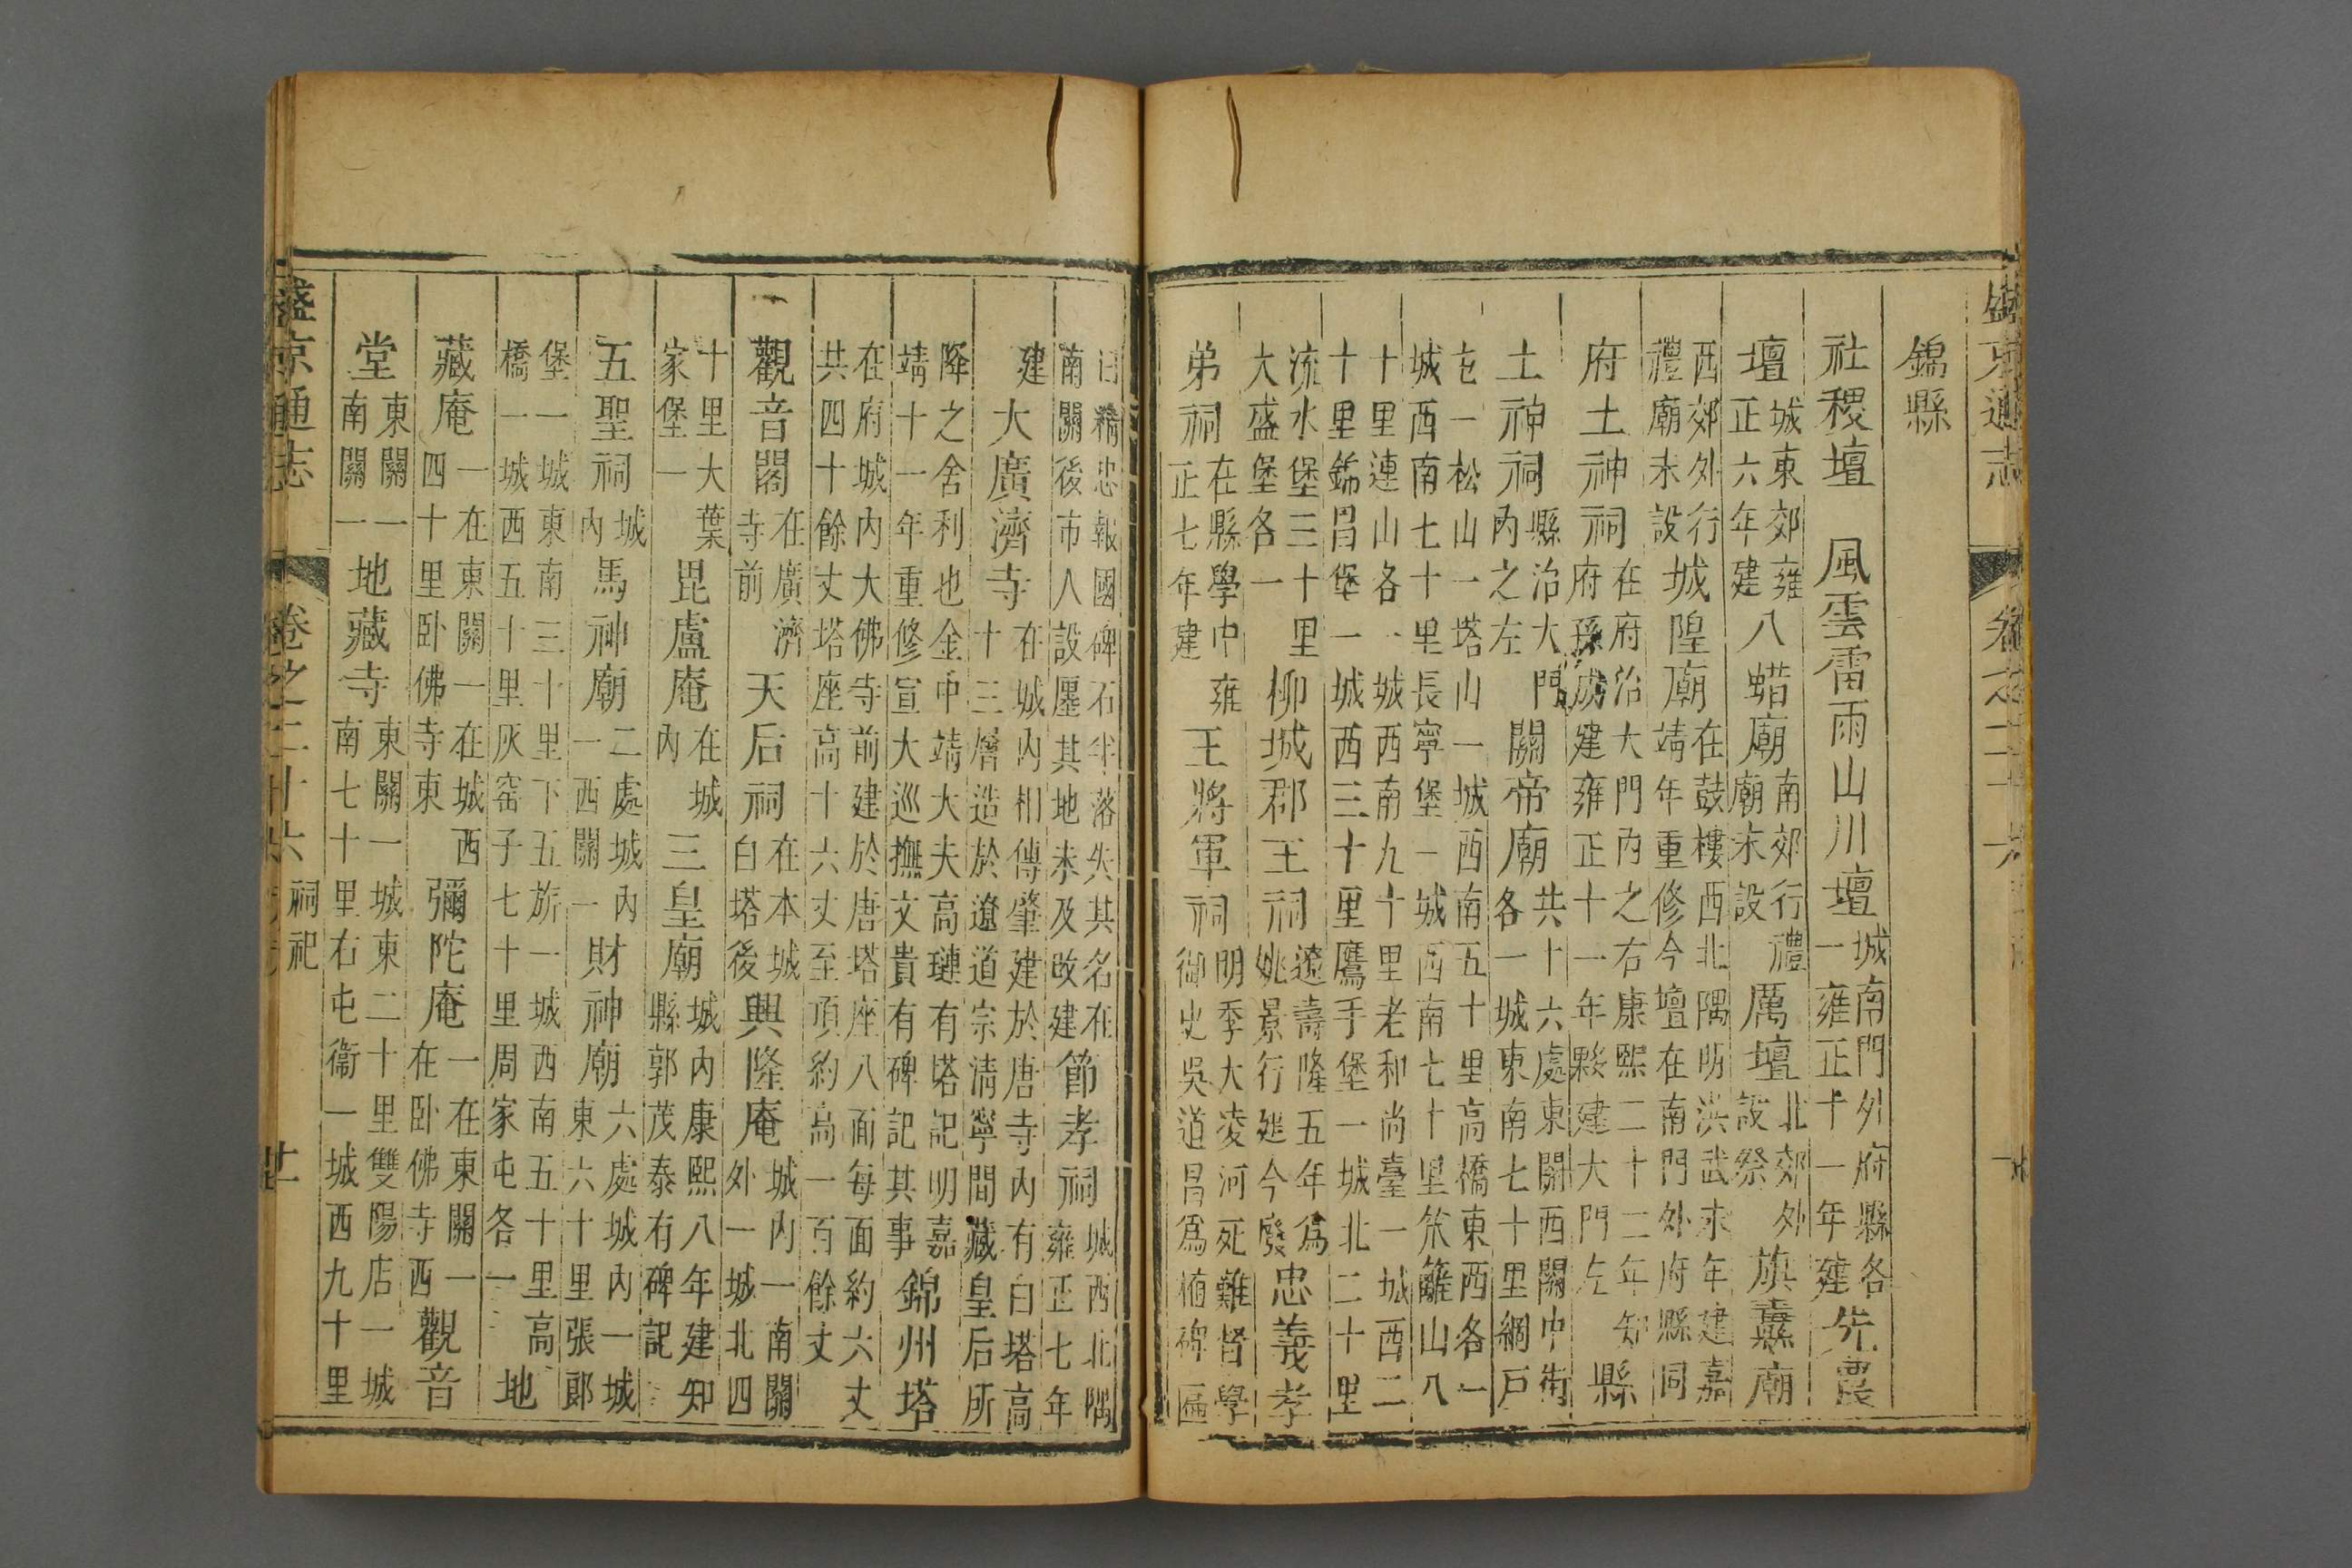 盛京通志 卷之二十六
錦縣
社稷壇 風雲雷雨山川壇城南門外府縣各一雍正十一年建先農
壇城東郊雍正六年建八蜡廟南郊行禮廟未設厲壇北郊外設祭旗纛廟
西郊外行禮廟未設城隍廟在鼓樓西北隅明洪武末年建嘉靖年重修今壇在南門外府縣同
府土神祠在府治大門內之右康熙二十二年知府孫成建雍正十一年夥建大門左縣
土神祠縣治大門內之左關帝廟共十六處東關西關中街各一城東南七十里網戶
屯一松山一塔山一城西南五十里高橋東西各一城西南七十里長寧堡一城西南七十里笊籬山八
十里連山各一城西南九十里老和尚臺一城西二十里錦昌堡一城西三十里鷹手堡一城北二十里
流水堡三十里大盛堡各一柳城郡王祠遼壽隆五年為姚景行建今廢忠義孝
弟祠在縣學中雍正七年建王將軍祠明季大凌河死難督學御史吳道昌為植碑匾
曰精忠報國碑石半落失其名在南關後市人設廛其地未及改建節孝祠城西北隅雍正七年
建大廣濟寺在城內相傳肇建於唐寺內有白塔高十三層造於遼道宗清寧間藏皇后所
降之舍利也金中靖大夫高璉有塔記明嘉靖十一年重修宣大巡撫文貴有碑記其事錦州塔
在府城內大佛寺前建於唐塔座八面每面約六丈共四十餘丈塔座高十六丈至頂約高一百餘丈
觀音閣在廣濟寺前天后祠在本城白塔後興隆庵城內一南關外一城北四
十里大葉家堡一毘盧庵在城內三皇廟城內康熙八年建知縣郭茂泰有碑記
五聖祠城內馬神廟二處城內一西關一財神廟六處城內一城東六十里張郎
堡一城東南三十里下五旂一城西南五十里高橋一城西五十里灰窑子七十里周家屯各一地
藏庵一在東關一在城西四十里卧佛寺東彌陀庵一在東關一在卧佛寺西觀音
堂東關一南關一地藏寺東關一城東二十里雙陽店一城南七十里右屯衞一城西九十里
盛京通志 卷之二十六 祠祀